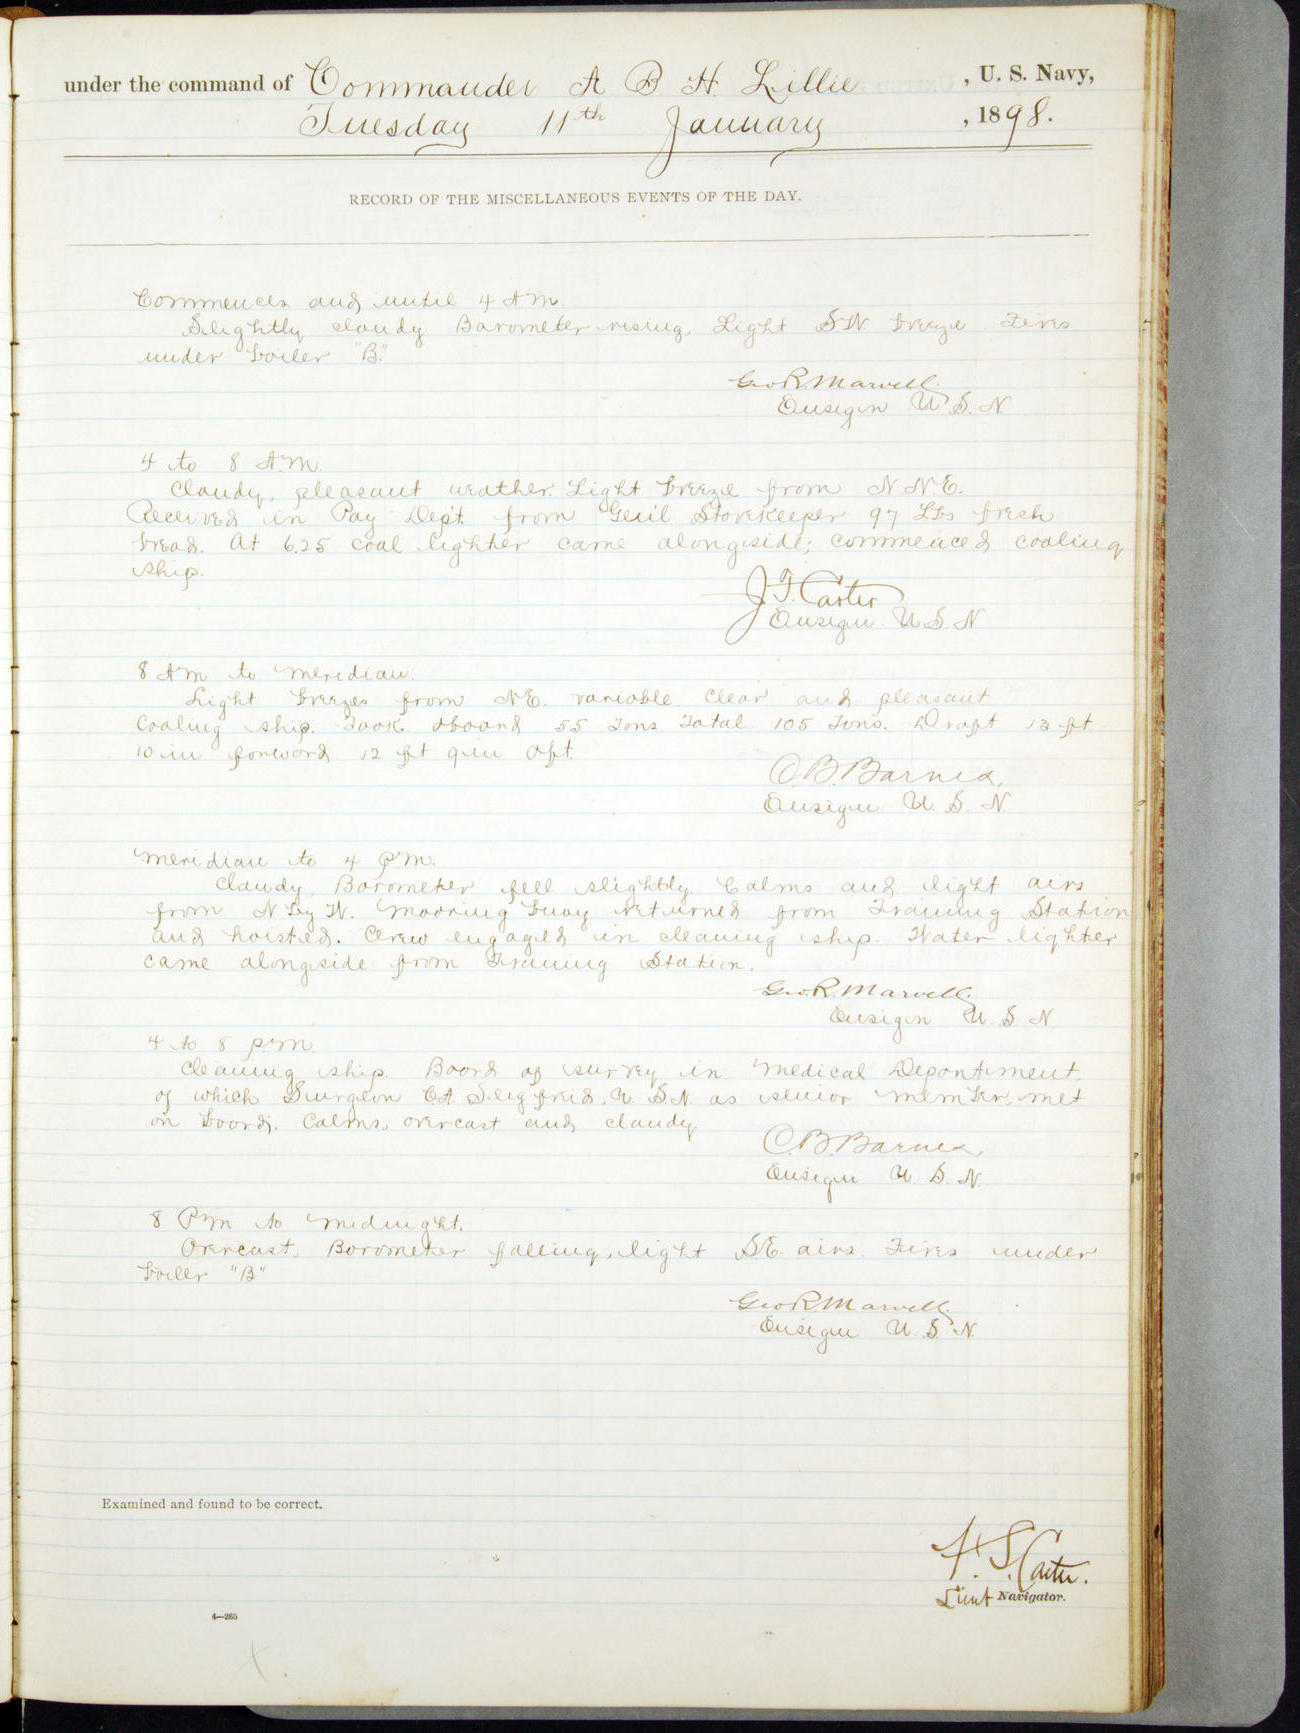 under the command of Commander A B H. Lillie, U. S. Navy,
Tuesday 11th January, 1898.
RECORD OF THE MISCELLANEOUS EVENTS OF THE DAY.
Commences and until 4 A M
Slightly cloudy Barometer rising, Light SW breeze Fires
under boiler "B."
Geo R. Marvell
Ensign U. S. N
4 to 8 A.M.
Cloudy, pleasant weather. Light breeze from N N E.
Received in Pay Dept. from Genl Storekeeper 97 Lbs fresh
bread. At 6.25 coal lighter came alongside; commenced coaling
ship.
J. F. Carter
Ensign U.S. N
8 AM to meridian.
Light breezes from NE. variable. Clear and pleasant
Coaling ship. Took aboard 55 Tons Total 105 Tons. Draft 13 ft
10 in forward 12 ft 9 in aft.
C. B. Barnes,
Ensign U. S. N.
Meridian to 4 P.M.
Cloudy, Barometer fell slightly. Calms and light airs
from N by W. Mooring buoy returned from Training Station
and hoisted. Crew engaged in cleaning ship. Water lighter
came alongside from Training Station.
Geo. R. Marvell
Ensign U. S. N
4 to 8 P.M.
Cleaning ship. Board of survey in Medical Department,
of which Surgeon C.A. Siegfried, U. S.N. as senior member, met
on board. Calms, overcast and cloudy
C. B. Barnes,
Ensign U. S. N.
8 P.M to midnight.
Overcast, Barometer falling, light S.E. airs. Fires under
boiler "B"
Geo R. Marvell
Ensign U. S. N.
Examined and found to be correct.
F. S. Carter.
Lieut Navigator.
4—265